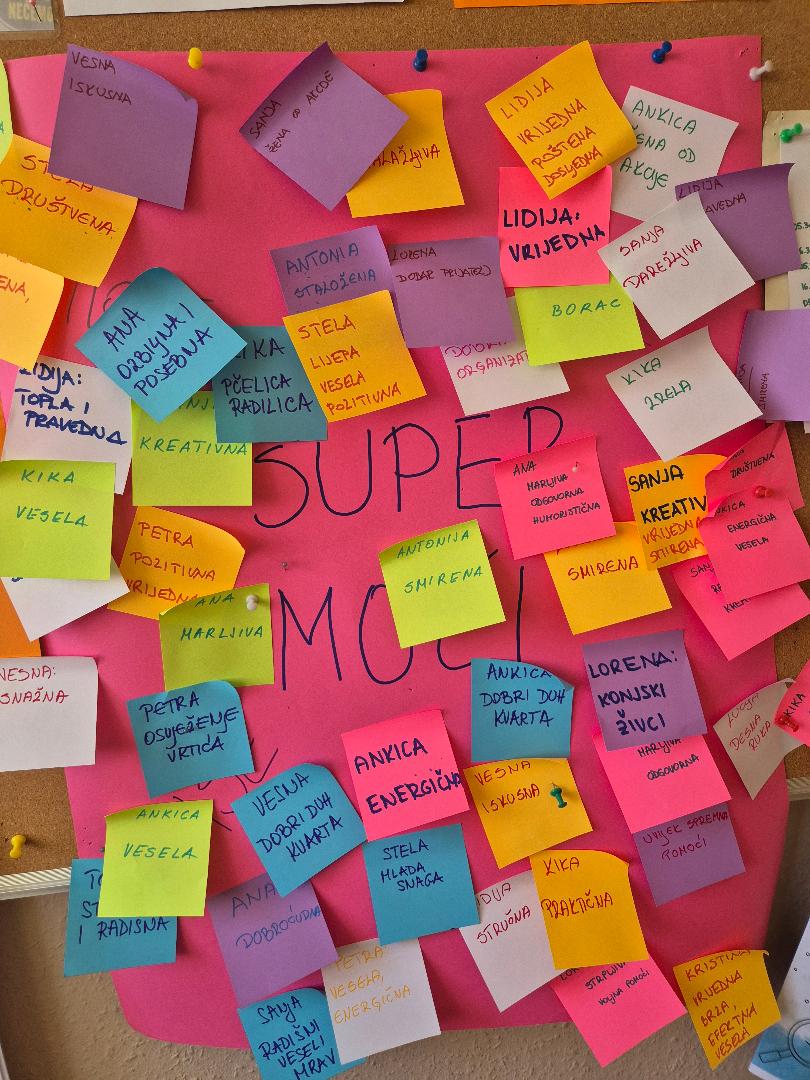 VESNA
ISKUSNA
SANJA
ŽENA OD AKCIJE
LIDIJA
VRIJEDNA
POŠTENA
DOSLJEDNA
ANKICA
ŽENA OD
AKCIJE
STELA
DRUŠTVENA
LIDIJA:
VRIJEDNA
LIDIJA
SANJA
DAREŽLJIVA
ANTONIA
STALOŽENA
LORENA
DOBAR PRIJATELJ
BORAC
ANA
OZBILJNA I
POSEBNA
STELA
LIJEPA
VESELA
POZITIVNA
KIKA
PČELICA
RADILICA
DOBRA
ORGANIZAT
KIKA
ZRELA
LIDIJA:
TOPLA I
PRAVEDNA
KREATIVNA
SUPER
MOĆI
KIKA
VESELA
ANA
MARLJIVA
ODGOVORNA
HUMORISTIČNA
SANJA
KREATIV
VRIJEDNA
SMIRENA
DRUŠTVENA
ENERGIČNA
VESELA
PETRA
POZITIVNA
VRIJEDNA
ANTONIJA
SMIRENA
SMIRENA
ANA
MARLJIVA
VESNA:
SNAŽNA
PETRA
OSVJEŽENJE
VRTIĆA
ANKICA
DOBRI DUH
KVARTA
LORENA:
KONJSKI
ŽIVCI
LUCIJA
DESNA
RUKA
KIKA
ANKICA
ENERGIČNA
MARLJIVA
ODGOVORNA
VESNA
DOBRI DUH
KVARTA
VESNA
ISKUSNA
ANKICA
VESELA
STELA
MLADA
SNAGA
UVIJEK SPREMNA
POMOĆI
I RADISNA
ANA
DOBROĆUDNA
STRUČNA
KIKA
PRAKTIČNA
PETRA
VESELA,
ENERGIČNA
STRPLJIVA
VOLJNA POMOĆI
KRISTINA
VRIJEDNA
BRZA,
EFEKTNA
VESELA
SANJA
RADIŠNI
VESELI
MRAV